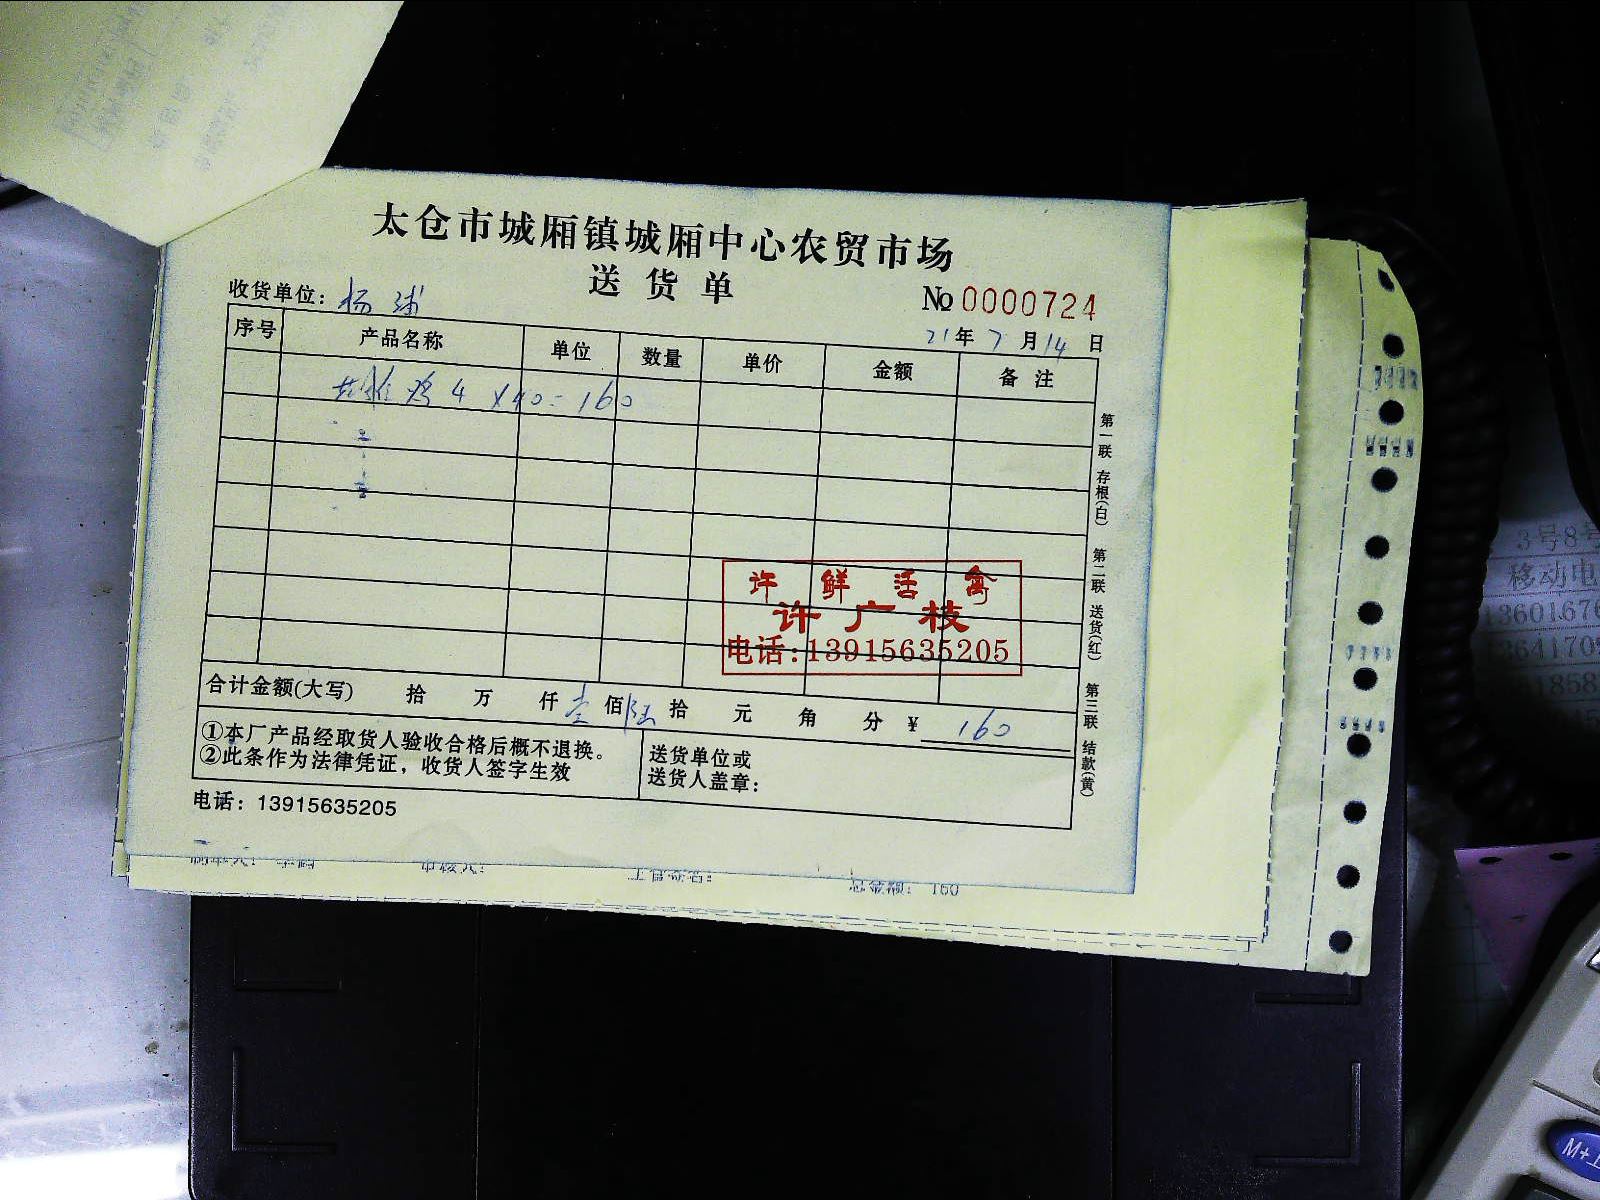 太仓市城厢镇城厢中心农贸市场
送货单
收货单位：杨浦
№0000724
21年7月14日
序号 产品名称 单位 数量 单价 金额 备注
鸡4×40=160
第一联 存根(白) 第二联 送货(红) 第三联 结款(黄)
许鲜活禽
许广枝
电话：13915635205
合计金额(大写) 拾 万 仟壹佰陆拾 元 角 分 ¥ 160
①本厂产品经取货人验收合格后概不退换。
②此条作为法律凭证，收货人签字生效
送货单位或
送货人盖章：
电话：13915635205
总金额： 160
3号8号
移动电
1360167
M+